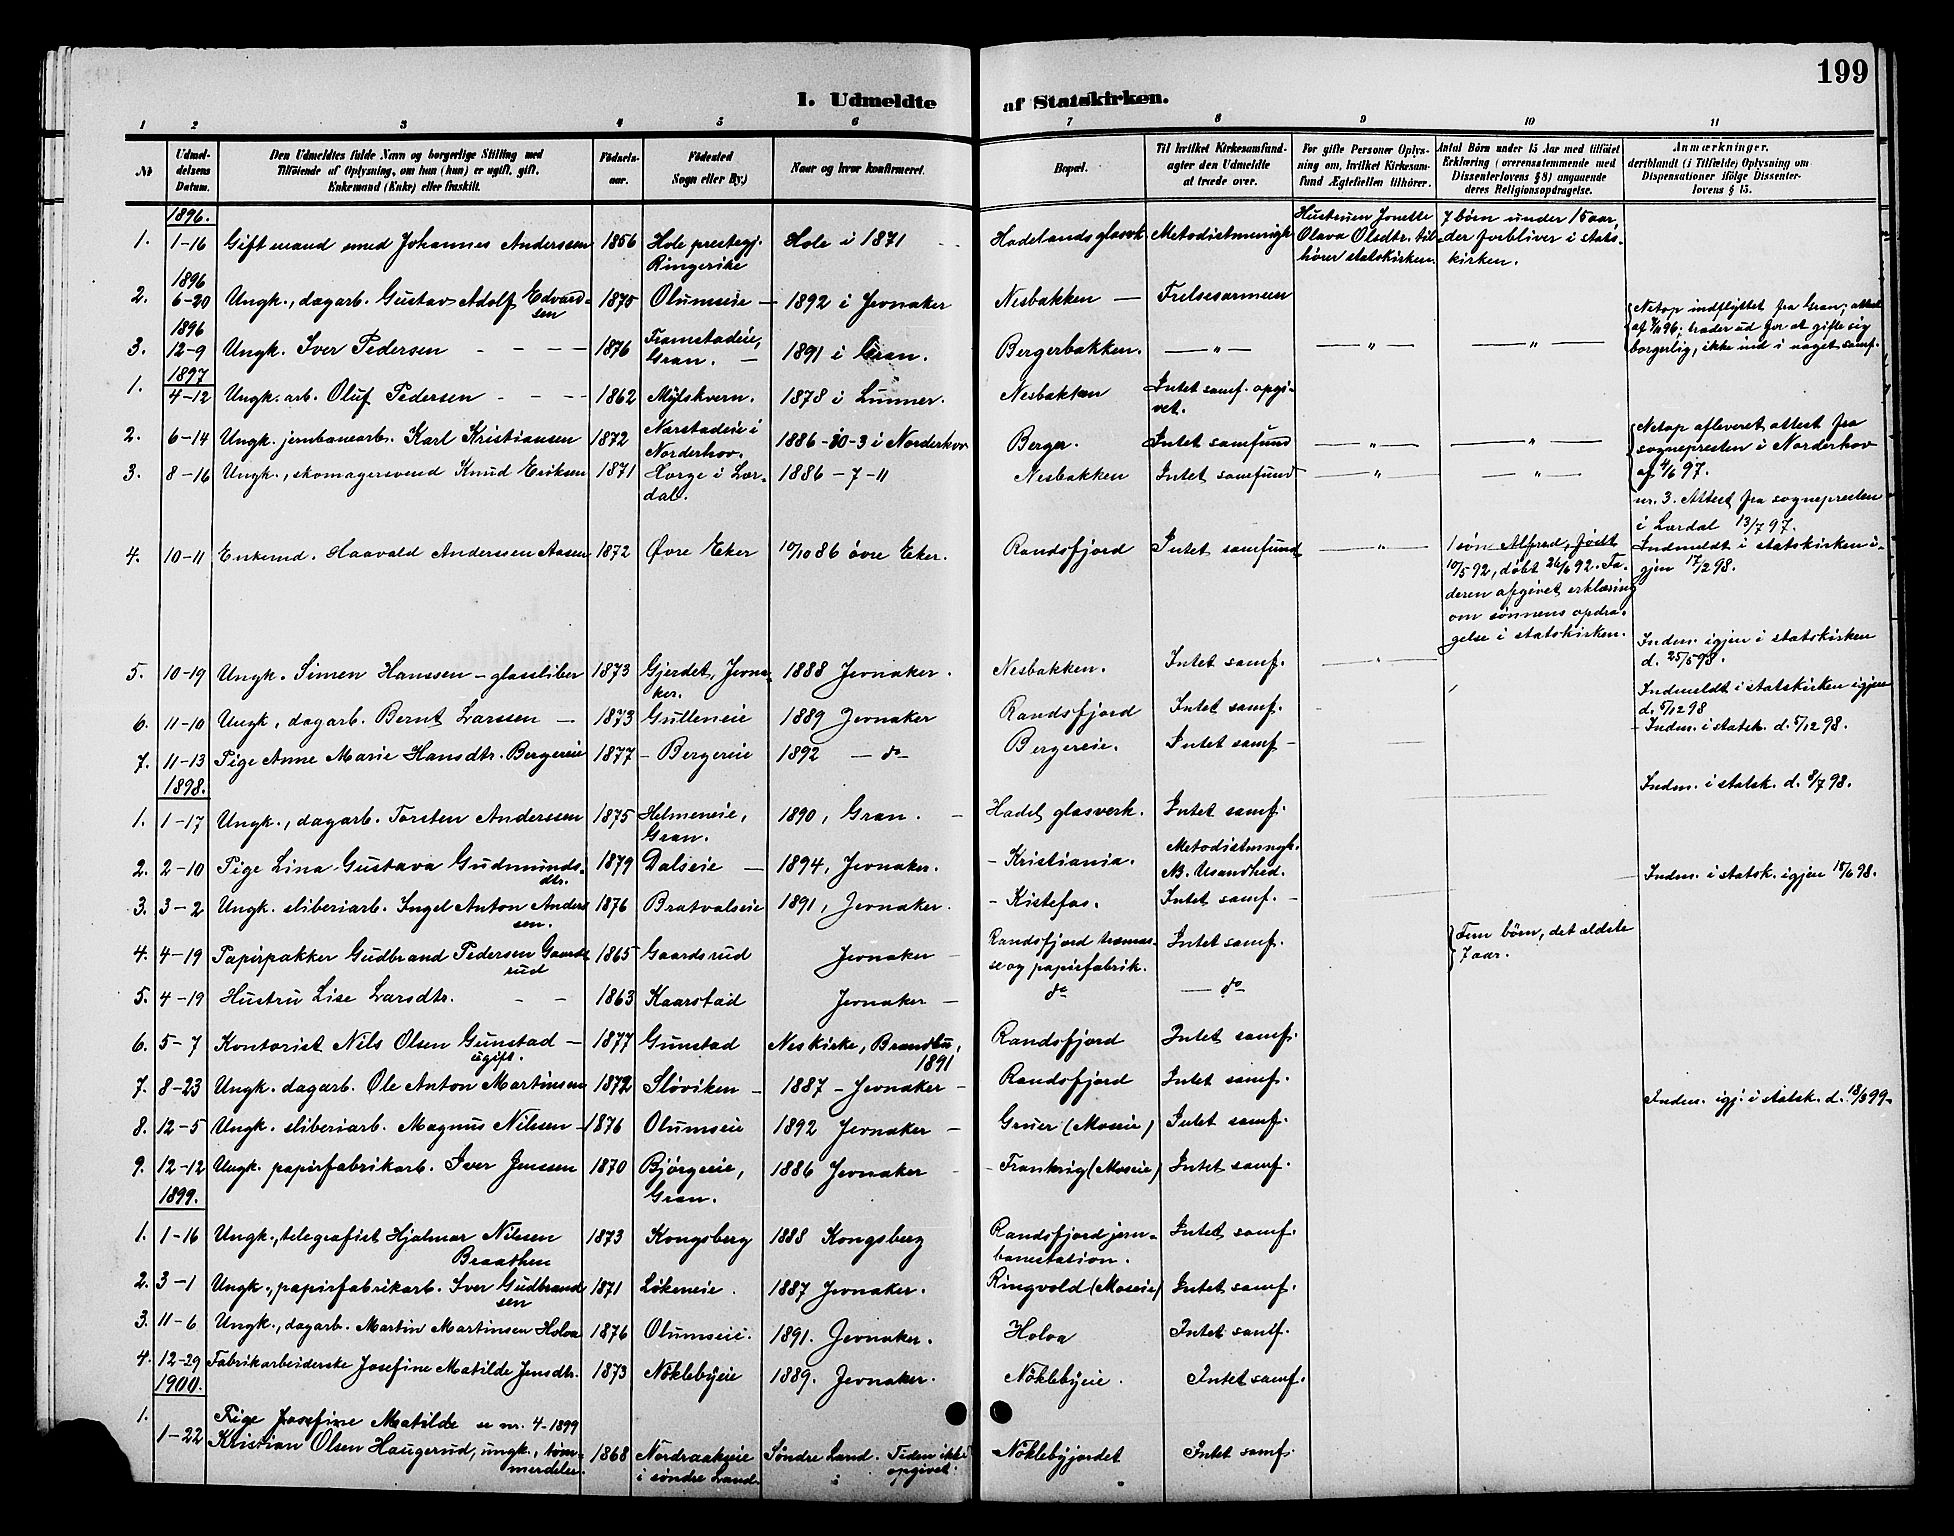 199
1. Udmeldte af Statskirken.
1 2 3 4 5 6 7 8 9 10 11
No
Udmeldelsens Datum.
Den Udmeldtes fulde Navn og borgerlige Stilling med Tilføiende af Oplysning, om han (hun) er ugift, gift, Enkemand (Enke) eller fraskilt.
Fødselsaar.
Fødested Sogn eller By.)
Naar og hvor konfirmeret.
Bopæl.
Til hvilket Kirkesamfund agter den Udmeldte at træde over.
For gifte Personer Oplysning om, hvilket Kirkesamfund Ægtefællen tilhører.
Antal Børn under 15 Aar med tilføiet Erklæring (overensstemmende med Dissenterlovens § 8) angaaende deres Religionsopdragelse.
Anmærkninger, deriblandt (i Tilfælde) Oplysning om Dispensationer ifølge Dissenterlovens § 15.
1896.
1. 1-16 Gift mand smed Johannes Anderssen 1856 Hole prestegj. Ringerike Hole i 1871 Hadelands glasvk Metodistmenigh Hustruen Jonette Olava Olsdtr. tilhører statskirken. 7 børn under 15 aar, der forbliver i statskirken.
1896
2. 6-20 Ungk., dagarb. Gustav Adolf Edvardsen 1875 Olumseie - 1892 i Jevnaker Nesbakken - Frelsesarmeen
1896
3. 12-9 Ungk. Iver Pedersen - - - - 1876 Framstadeie, Gran. - 1891 i Gran. Bergerbakken. - " - - " - - " - Netop indflyttet fra Gran; attest af 96; træder ud for at gifte sig borgerlig, ikke ind i noget samf.
1897
1. 4-12 Ungk. arb. Oluf Pedersen - - - - 1862 Mylskvern. 1878 i Lunner. Nesbakken Intet samf. opgivet.
2. 6-14 Ungk. jernbanearb. Karl Kristiansen 1872 Nærstadeie i Norderhov. 1886-30-3 i Norderhov Berger. Intet samfund - " - - " - Netop afleveret attest fra sognepresten i Norderhov af 4/6 97.
3. 8-16 Ungk., skomagersvend Knud Eriksen 1871 Horge i Lærdal. 1886-7-11 Nesbakken Intet samfund - " - - " - nr. 3. Attest fra sognepresten i Lærdal 13/7 97.
4. 10-11 Enkemd. Haavald Anderssen Aasen 1872 Øvre Eker 10/10 86 øvre Eker. Randsfjord Intet samfund - " - 1 søn Alfred, født 10/5 92, døbt 26/6 92. Faderen afgivet erklæring om sønnens opdragelse i statskirken. Indmeldt i statskirken igjen 17/2 98.
5. 10-19 Ungk. Simen Hanssen - glassliber 1873 Gjerdet, Jevnaker. 1888 Jevnaker. Nesbakken. Intet samf. - " - Indm. igjen i statskirken d. 25/5 98.
6. 11-10 Ungk, dagarb. Bernt Larssen - 1873 Gulleneie 1889 Jevnaker Randsfjord Intet samf. Indmeldt i statskirken igjen d. 5/12 98
7. 11-13 Pige Anne Marie Hansdtr. Bergereie 1877 - Bergereie 1892 - do - Bergereie. Intet samf - - Indm. i statsk. d. 5/12 98.
1898.
1. 1-17 Ungk., dagarb. Torsten Anderssen 1875 Helmeneie, Gran. 1890, Gran. - Hadel glasverk. Intet samf. Indm. i statsk. d. 8/7 98.
2. 2-10 Pige Lina Gustava Gudmundsdtr. 1879 Dalseie - 1894, Jevnaker. - Kristiania. Metodistmngh. NB. Usandhed. Indm. i statsk. igjen 98.
3. 3-2 Ungk. sliberiarb. Ingel Anton Andersen. 1876 Bratvalseie 1891, Jevnaker. - Kistefos. Intet samf. -
4. 4-19 Papirpakker Gudbrand Pedersen Gaardsrud 1865 Gaardsrud Jevnaker - Randsfjord træmasse og papirfabrik. Intet samf. Fem børn, det ældste 7 aar.
5. 4-19 Hustru Lise Larsdtr. - - 1863 Kaarstad Jevnaker - do - do
6. 5-7 Kontorist Nils Olsen Gunstad - ugift. 1877 Gunstad Neskirke, Brandbu, 1891 Randsfjord Intet samf.
7. 8-23 Ungk. dagarb. Ole Anton Martinsen 1872 Sløviken - 1887 - Jevnaker - Randsfjord Intet samf. Indm. igj. i statsk. d. 99.
8. 12-5 Ungk. sliberiarb. Magnus Nilssen - 1876 Olumseie 1892 Jevnaker - Gruer (Moseie) Intet samf.
9. 12-12 Ungk. papirfabrikarb. Iver Jenssen 1870 Bjørgeeie, Gran. 1886 Jevnaker - Frankrig (Moseie) Intet samf.
1899.
1. 1-16 Ungk., telegrafist Hjalmar Nilsen Braathen 1873 Kongsberg 1888 Kongsberg Randsfjord jernbanestation. Intet samf.
2. 3-1 Ungk., papirfabrikarb. Iver Gudbrandsen 1871 Løkeneie. 1887 Jevnaker. Ringvold (Moseie) Intet samf.
3. 11-6 Ungk., dagarb. Martin Martinsen Holoa 1876 Olumseie. 1891. Jevnaker. Holoa Intet samf.
4. 12-29 Fabrikarbeiderske Josefine Matilde Jensdtr. 1873 Nøklebyeie 1889. Jevnaker. Nøklebyeie. Intet samf.
1900.
1. Pige Josefine Matilde se nr. 4-1899
1-22 Kristian Olsen Haugerud, ungk., tømmerdeler. 1868 Nordraakeie i søndre Land. Søndre Land. Tiden ikke opgivet. Nøklebyjordet Intet samf.